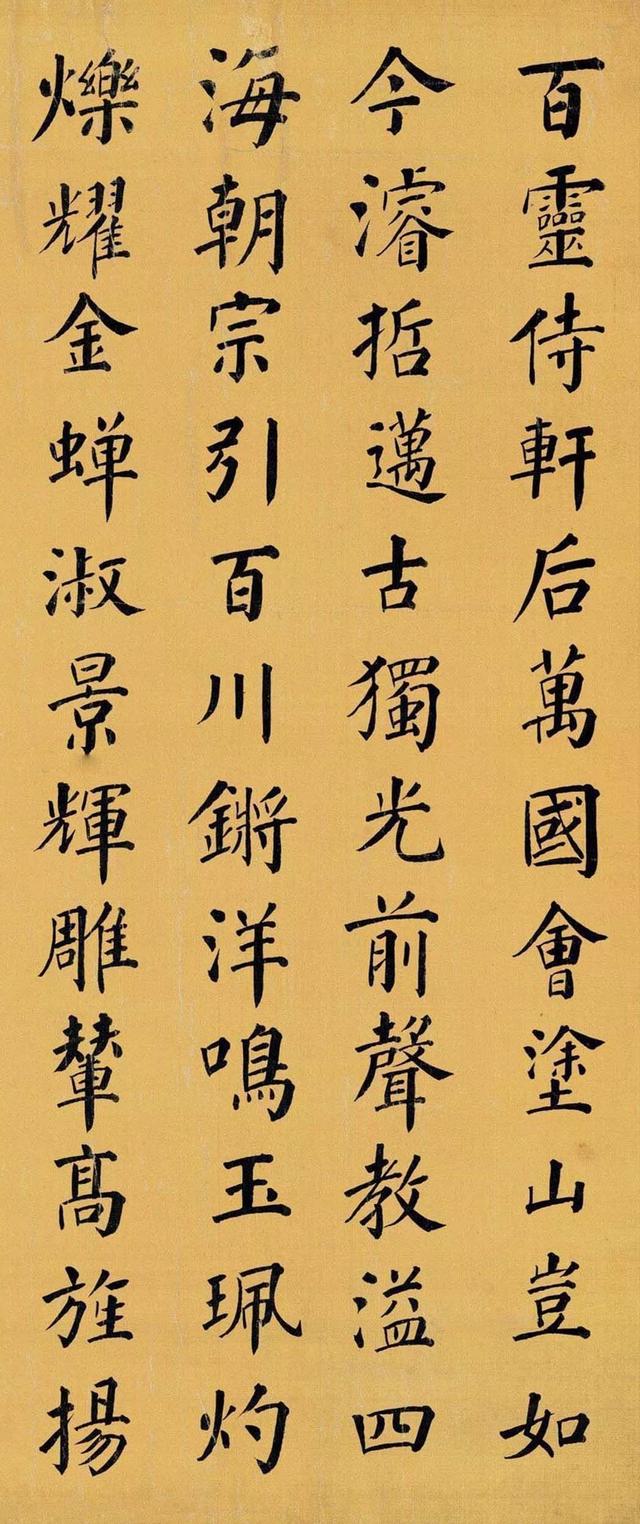 百靈侍軒后萬國會塗山豈如
今濬哲邁古獨光前聲教溢四
海朝宗引百川鏘洋鳴玉珮灼
爍耀金蟬淑景輝雕輦高旌揚